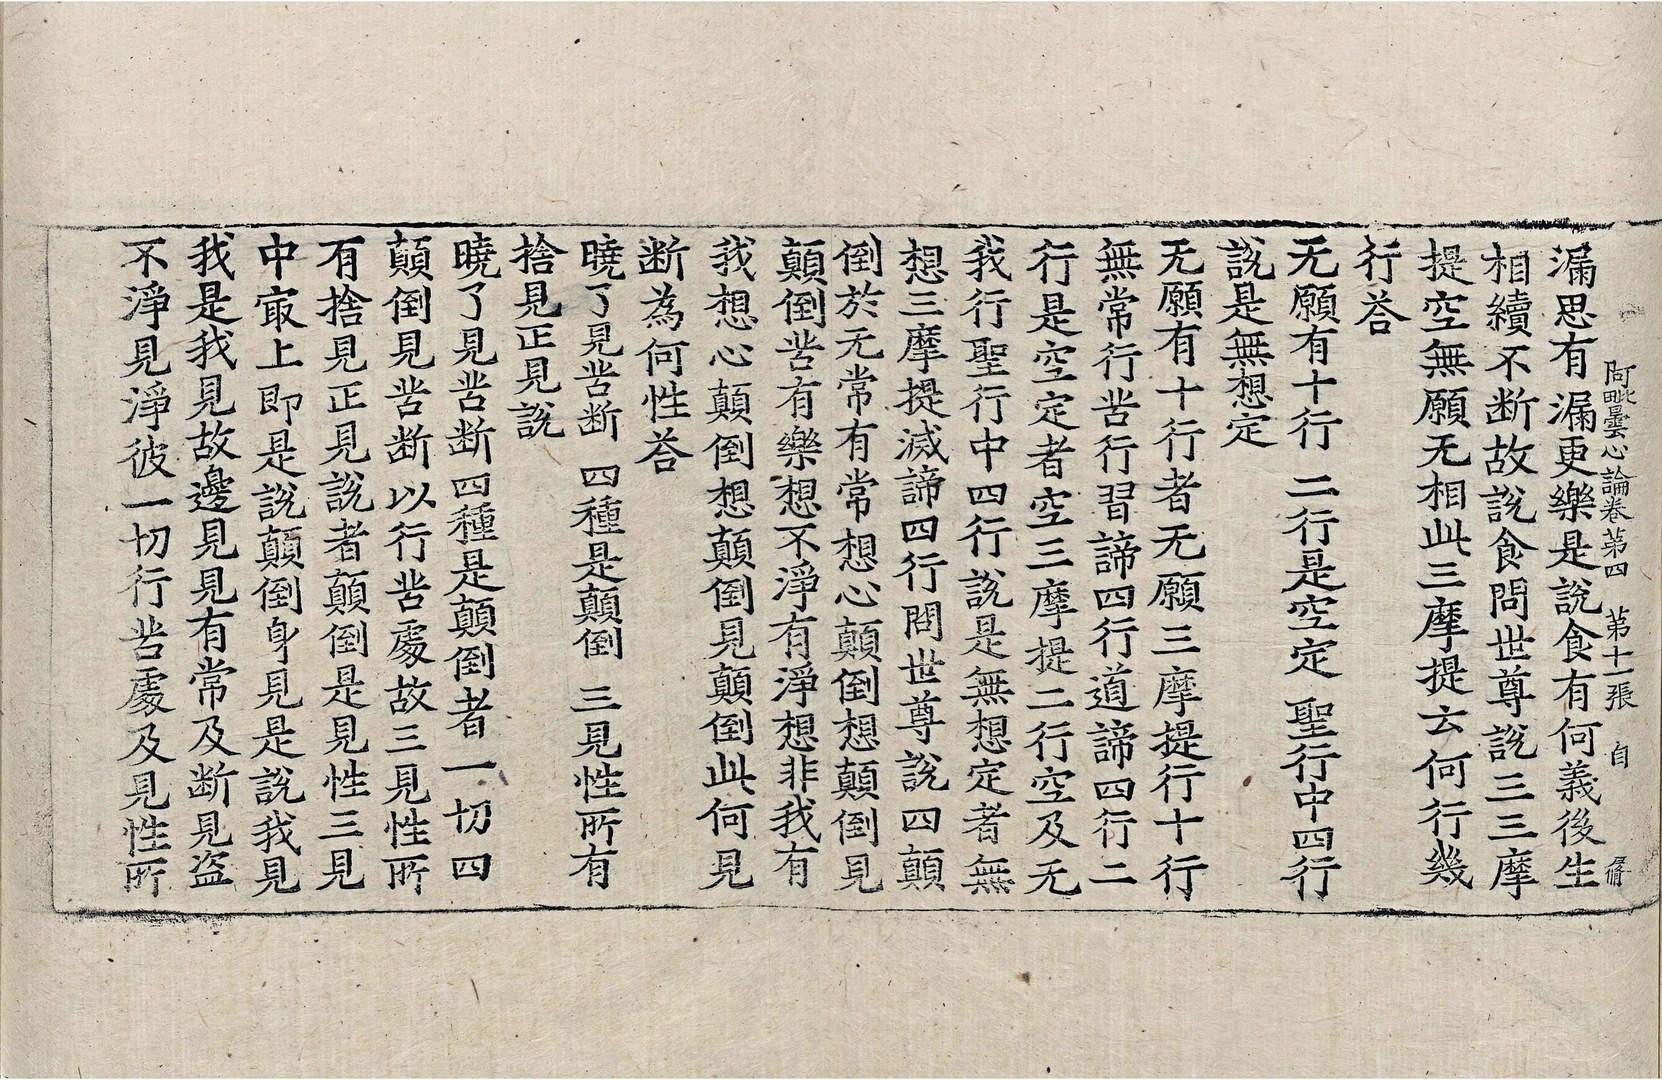 阿毗曇心論卷第四　第十一張　自
漏思有漏更樂是說食有何義後生
相續不断故說食問世尊說三三摩
提空無願无相此三摩提云何行幾
行荅
无願有十行　二行是空定　聖行中四行
說是無想定
无願有十行者无願三摩提行十行
無常行苦行習諦四行道諦四行二
行是空定者空三摩提二行空及无
我行聖行中四行說是無想定者無
想三摩提滅諦四行問世尊說四顛
倒於无常有常想心顛倒想顛倒見
顛倒苦有樂想不淨有淨想非我有
我想心顛倒想顛倒見顛倒此何見
断為何性荅
曉了見苦断　四種是顛倒　三見性所有
捨見正見說
曉了見苦断四種是顛倒者一切四
顛倒見苦断以行苦處故三見性所
有捨見正見說者顛倒是見性三見
中冣上即是說顛倒身見是說我見
我是我見故邊見見有常及断見盜
不淨見淨彼一切行苦處及見性所